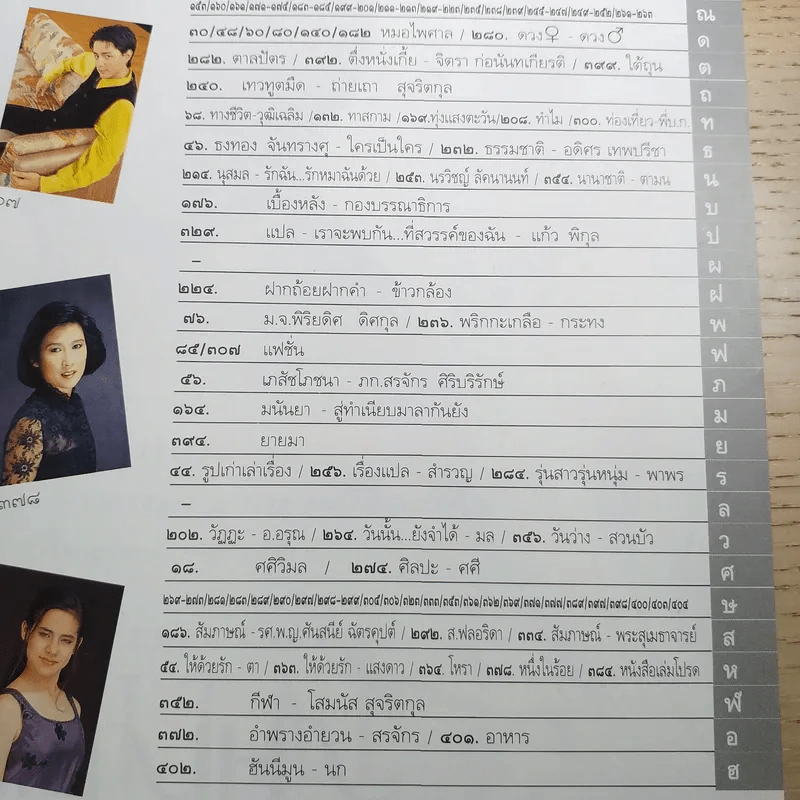 ๑๕๓/๑๖๐/๑๖๑/๑๗๑-๑๗๕/๑๘๓-๑๘๕/๑๙๙-๒๐๑/๒๑๑-๒๑๗/๒๑๙-๒๒๓/๒๓๕/๒๓๘/๒๓๙/๒๔๕-๒๔๗/๒๔๙-๒๕๒/๒๖๑-๒๖๓ ณ
๓๐/๔๘/๖๐/๘๐/๑๔๐/๑๘๒ หมอไพศาล / ๒๘๐. ดวง♀ - ดวง♂ ด
๒๘๒. ตาลปัตร / ๓๙๒. ตึ่งหนั่งเกี้ย - จิตรา ก่อนันทเกียรติ / ๓๙๙. ใต้ถุน ต
๒๔๐. เทวทูตมืด - ถ่ายเถา สุจริตกุล ถ
๖๘. ทางชีวิต-วุฒิเฉลิม /๑๓๒. ทาสกาม /๑๖๙.ทุ่งแสงตะวัน/๒๐๘. ทำไม /๓๐๐. ท่องเที่ยว-พี่บ.ก. ท
๔๖. ธงทอง จันทรางศุ - ใครเป็นใคร / ๒๓๒. ธรรมชาติ - อดิศร เทพปรีชา ธ
๒๑๔. นุสมล - รักฉัน...รักหมาฉันด้วย / ๒๕๓. นรวิชญ์ ลัคนานนท์ / ๓๕๔. นานาชาติ - ตามน น
๑๗๖. เบื้องหลัง - กองบรรณาธิการ บ
๓๒๙. แปล - เราจะพบกัน...ที่สวรรค์ของฉัน - แก้ว พิกุล ป
– ผ
๒๒๔. ฝากถ้อยฝากคำ - ข้าวกล้อง ฝ
๗๖. ม.จ.พิริยดิศ ดิศกุล / ๒๓๖. พริกกะเกลือ - กระทง พ
๘๕/๓๐๗ แฟชั่น ฟ
๕๖. เภสัชโภชนา - ภก.สรจักร ศิริบริรักษ์ ภ
๑๖๔. มนันยา - สู่ทำเนียบมาลากันยัง ม
๓๙๔. ยายมา ย
๔๔. รูปเก่าเล่าเรื่อง / ๒๕๖. เรื่องแปล - สำรวญ / ๒๘๔. รุ่นสาวรุ่นหนุ่ม - พาพร ร
– ล
๒๐๒. วัฏฏะ - อ.อรุณ / ๒๖๔. วันนั้น...ยังจำได้ - มล / ๓๕๖. วันว่าง - สวนบัว ว
๑๘. ศศิวิมล / ๒๗๔. ศิลปะ - ศศี ศ
๒๖๙-๒๗๓/๒๘๑/๒๘๓/๒๘๙/๒๙๐/๒๙๗/๒๙๘-๒๙๙/๓๐๕/๓๐๖/๓๒๓/๓๓๓/๓๕๓/๓๖๑/๓๖๒/๓๖๙/๓๗๑/๓๗๗/๓๘๙/๓๙๗/๓๙๘/๔๐๐/๔๐๓/๔๐๔ ษ
๑๘๖. สัมภาษณ์ - รศ.พ.ญ.ศันสนีย์ ฉัตรคุปต์ / ๒๙๒. ส.ฟลอริดา / ๓๓๔. สัมภาษณ์ - พระสุเมธาจารย์ ส
๕๔. ให้ด้วยรัก - ตา / ๓๖๓. ให้ด้วยรัก - แสงดาว / ๓๖๔. โหรา / ๓๗๘. หนึ่งในร้อย / ๓๘๔. หนังสือเล่มโปรด ห
๓๕๒. กีฬา - โสมนัส สุจริตกุล ฬ
๓๗๒. อำพรางอำยวน - สรจักร / ๔๐๑. อาหาร อ
๔๐๒. ฮันนีมูน - นก ฮ
๓๗๘